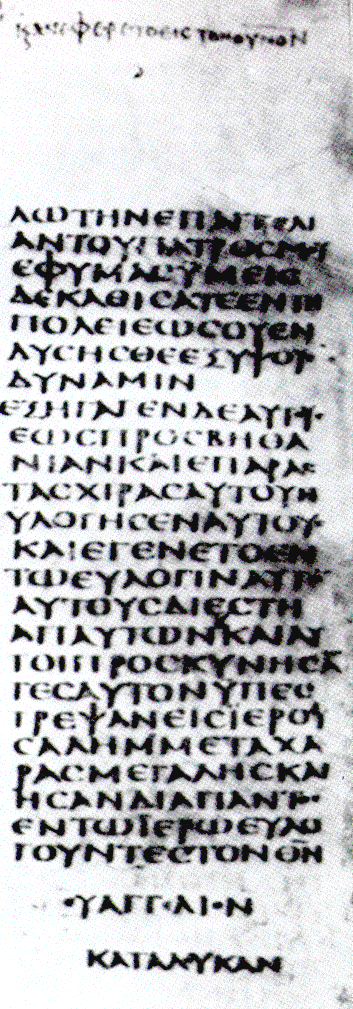 καιανεφερετοειϲτονουρανον
ΛΩΤΗΝΕΠΑΓΓΕΛΙ
ΑΝΤΟΥΠΑΤΡΟϹΜΟΥ
ΕΦΥΜΑϹΫΜΕΙϹ
ΔΕΚΑΘΙϹΑΤΕΕΝΤΗ
ΠΟΛΕΙΕΩϹΟΥΕΝ
ΔΥϹΗϹΘΕΕΞΥΨΟΥϹ
ΔΥΝΑΜΙΝ
ΕΞΗΓΑΓΕΝΔΕΑΥΤΟΥϹ
ΕΩϹΠΡΟϹΒΗΘΑ
ΝΙΑΝΚΑΙΕΠΑΡΑϹ
ΤΑϹΧΙΡΑϹΑΥΤΟΥΗ
ΥΛΟΓΗϹΕΝΑΥΤΟΥϹ
ΚΑΙΕΓΕΝΕΤΟΕΝ
ΤΩΕΥΛΟΓΙΝΑΥΤΟΝ
ΑΥΤΟΥϹΔΙΕϹΤΗ
ΑΠΑΥΤΩΝΚΑΙΑΥ
ΤΟΙΠΡΟϹΚΥΝΗϹΑ̅
ΤΕϹΑΥΤΟΝΫΠΕϹ
ΤΡΕΨΑΝΕΙϹΪΕΡΟΥ
ϹΑΛΗΜΜΕΤΑΧΑ
ΡΑϹΜΕΓΑΛΗϹΚΑΙ
ΗϹΑΝΔΙΑΠΑΝΤΟϹ
ΕΝΤΩΪΕΡΩΕΥΛΟ
ΓΟΥΝΤΕϹΤΟΝΘ̅Ν̅
ΕΥΑΓΓΕΛΙΟΝ
ΚΑΤΑΛΟΥΚΑΝ